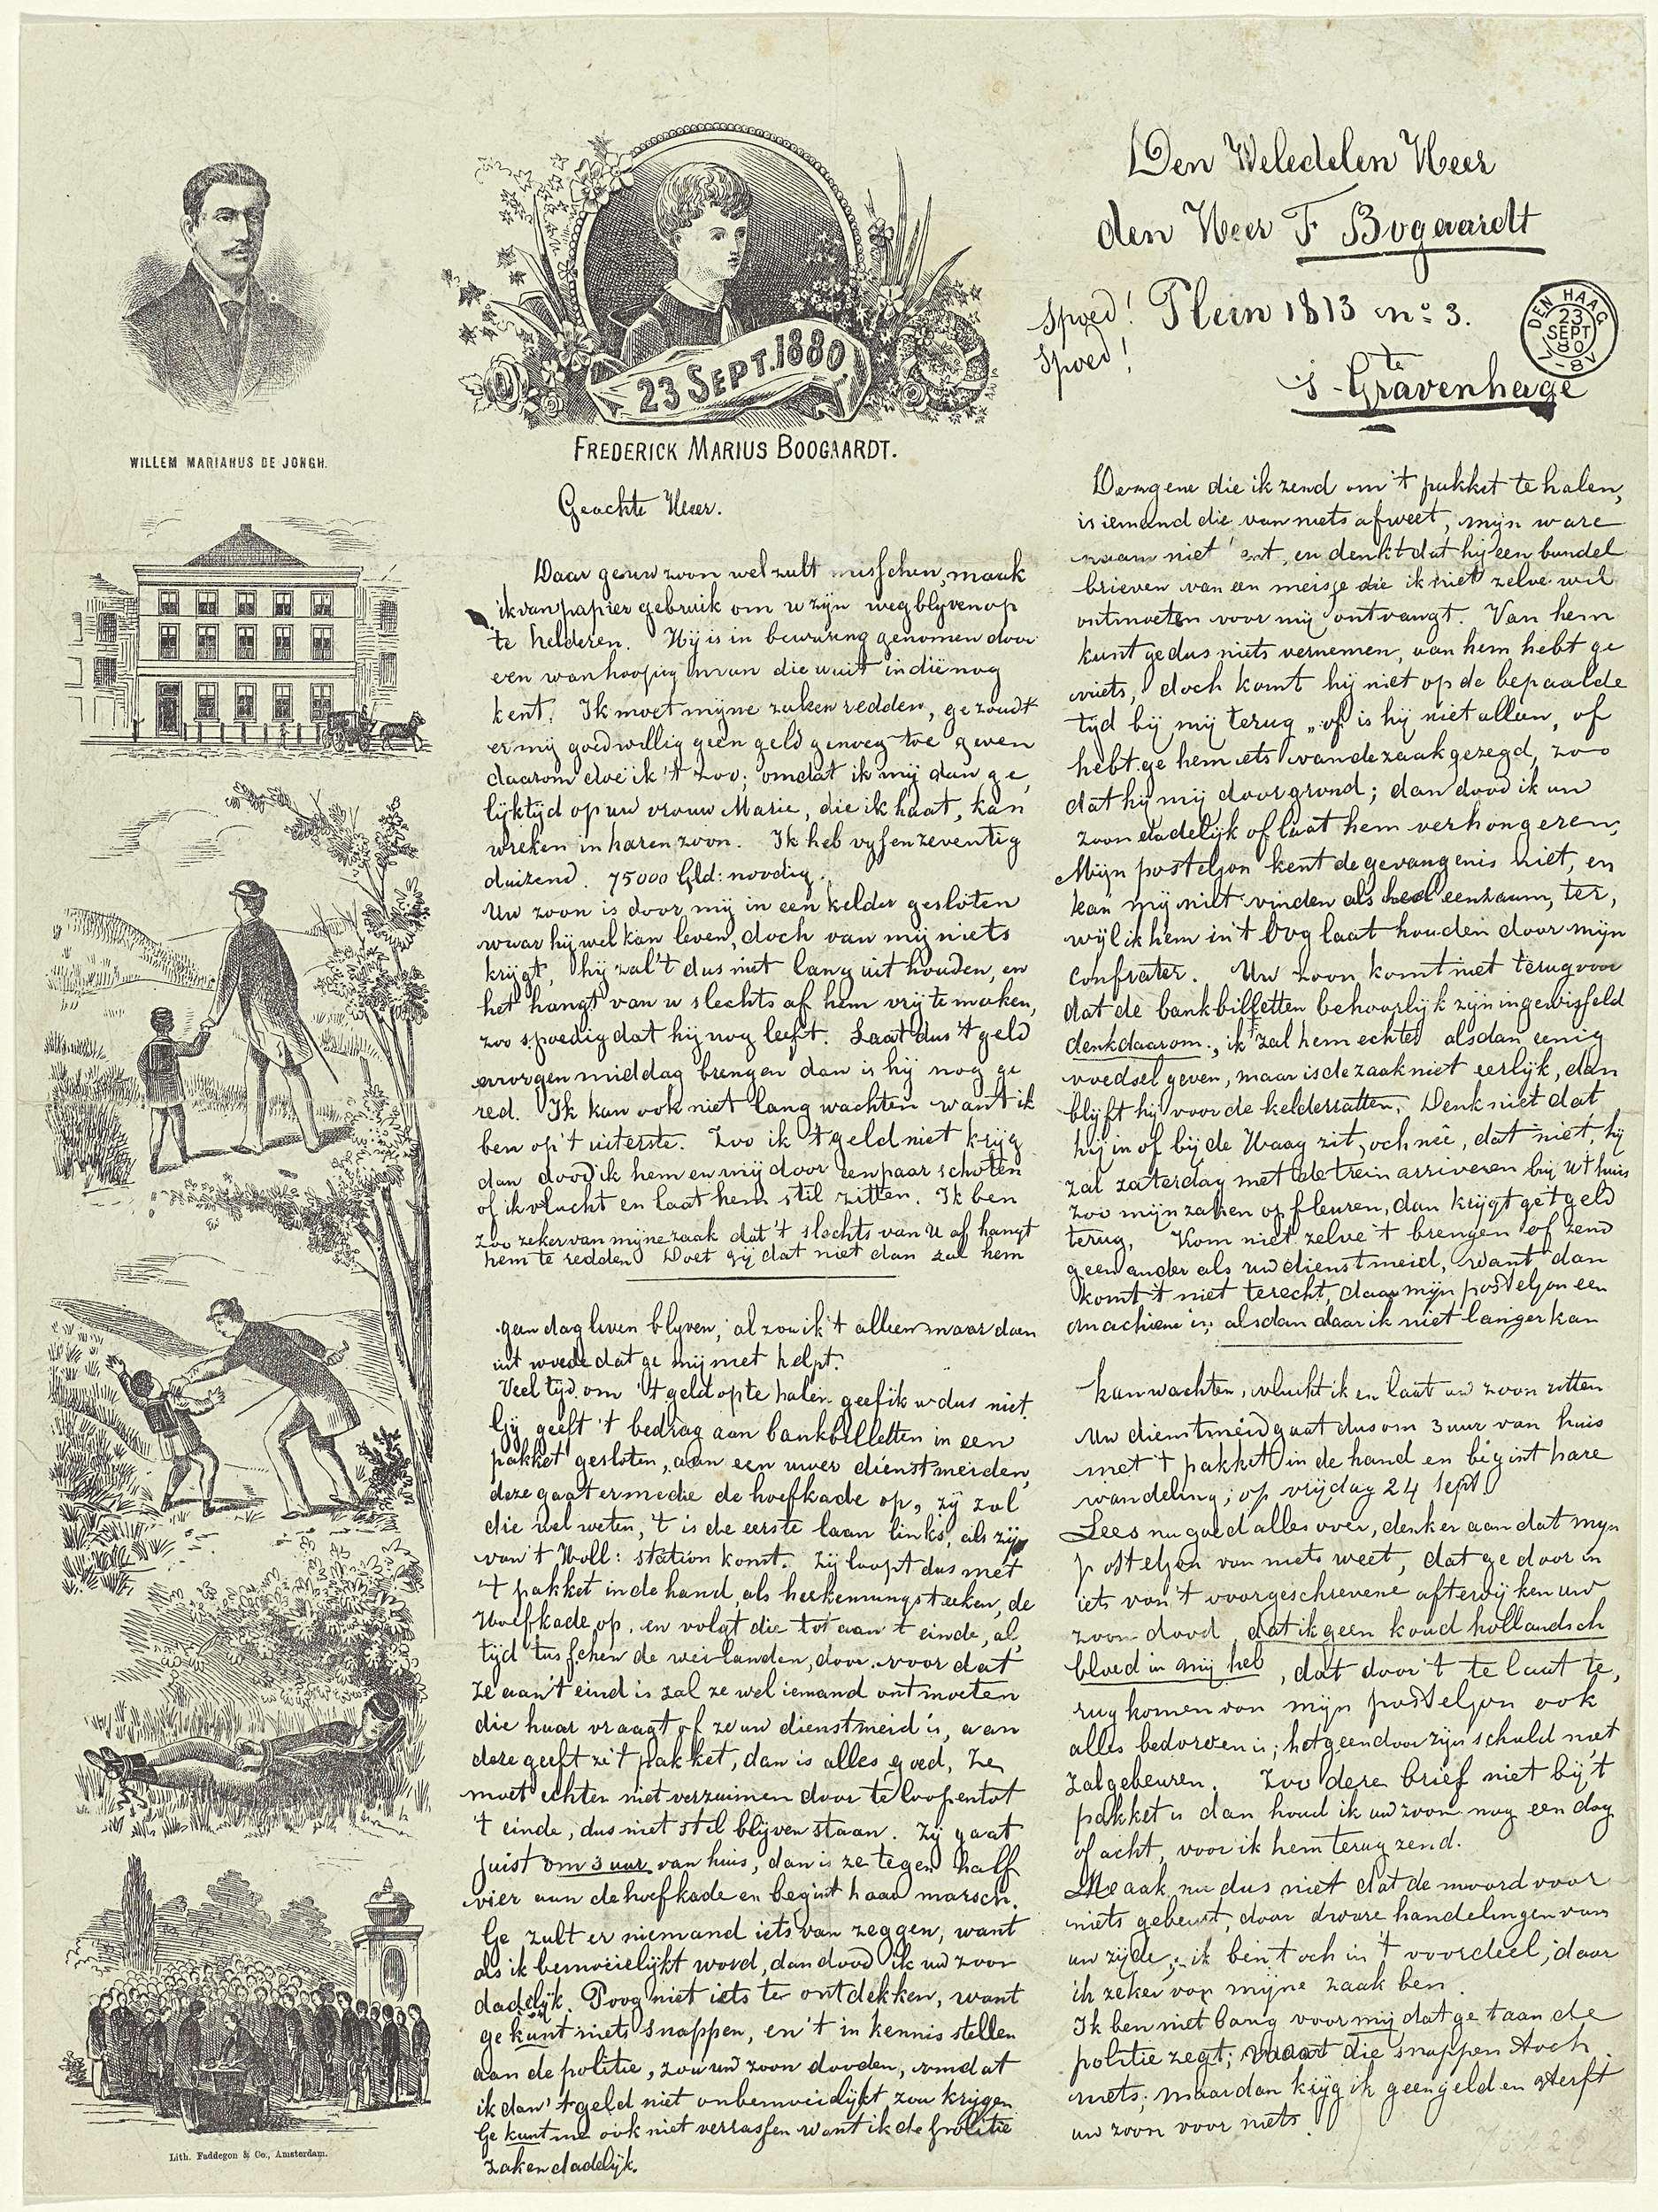 WILLEM MARIANUS DE JONGH.
23 SEPT. 1880
FREDERICK MARIUS BOOGAARDT.
Geachte Heer.
Daar ge uw zoon wel zult misschen, maak
ik van papier gebruik om u zijn wegblijven op
te helderen. Hij is in bewaring genomen door
een wanhoopig man die u uit indië nog
kent. Ik moet mijne zaken redden, ge zoudt
er mij goedwillig geen geld genoeg toe geven
daarom doe ik 't zoo; omdat ik mij dan ge,
lijktijd op uw vrouw Marie, die ik haat, kan
wreken in haren zoon. Ik heb vyfenzeventig
duizend. 75000 Gld: noodig.
Uw zoon is door mij in een kelder gesloten
waar hij wel kan leven, doch van mij niets
krijgt, hij zal 't dus niet lang uit houden, en
het hangt van u slechts af hem vrij te maken,
zoo spoedig dat hij nog leeft. Laat dus 't geld
morgen middag brengen dan is hij nog ge
red. Ik kan ook niet lang wachten want ik
ben op 't uiterste. Zoo ik 't geld niet krijg
dan dood ik hem en mij door een paar schoten
of ik vlucht en laat hem stil zitten. Ik ben
zoo zeker van mijne zaak dat 't slechts van U af hangt
hem te redden Doet gij dat niet dan zal hem
geen dag leven blyven, al zou ik 't alleen maar doen
uit woede dat ge mij niet helpt.
Veel tijd om 't geld op te halen geef ik u dus niet.
Gij geeft 't bedrag aan bankbilletten in een
pakket gesloten, aan een uwer dienstmeiden,
deze gaat ermede de hoefkade op, zij zal
die wel weten, 't is de eerste laan links, als zij
van 't Holl: station komt. Zij loopt dus met
't pakket in de hand, als herkenningsteeken, de
Hoefkade op, en volgt die tot aan 't einde, al,
tijd tusschen de weilanden, door. voor dat
ze aan 't eind is zal ze wel iemand ontmoeten
die haar vraagt of ze uw dienstmeid is, aan
deze geeft ze 't pakket, dan is alles goed, Ze
moet echter niet verzuimen door te loopen tot
't einde, dus niet stil blijven staan. Zij gaat
juist om 3 uur van huis, dan is ze tegen half
vier aan de hoefkade en begint haar marsch.
Ge zult er niemand iets van zeggen, want
als ik bemoeielijkt word, dan dood ik uw zoon
dadelijk. Poog niet iets te ontdekken, want
ge kunt niets snappen, en 't in kennis stellen
aan de politie, zou uw zoon dooden, omdat
ik dan 't geld niet onbemoeidlijkt zou krijgen
Ge kunt me ook niet verrassen want ik de politie
zaken dadelijk.
Den Weledelen Heer
den Heer F Bogaardt
Spoed! Plein 1813 no 3.
Spoed!
te
's-Gravenhage
DEN HAAG
23
SEPT
80
7-8V
Dengene die ik zend om 't pakket te halen,
is iemand die van niets afweet, mijn ware
naam niet en denkt dat hij een bundel
brieven van een meisje die ik niet zelve wil
ontmoeten voor mij ontvangt. Van hem
kunt ge dus niets vernemen, aan hem hebt ge
niets, doch komt hij niet op de bepaalde
tijd bij mij terug, of is hij niet alleen, of
hebt ge hem iets van de zaak gezegd, zoo
dat hij mij doorgrond; dan dood ik uw
zoon dadelijk of laat hem verhongeren,
Mijn posteljon kent de gevangenis niet, en
kan mij niet vinden als heel eenzaam, ter,
wijl ik hem in 't oog laat houden door mijn
confrater. Uw zoon komt niet terug voor
dat de bankbilletten behoorlijk zijn ingewisseld
denk daarom., ik zal hem echter alsdan eenig
voedsel geven, maar is de zaak niet eerlijk, dan
blijft hij voor de kelderratten. Denk niet dat
hij in of bij de Haag zit, och neê, dat niet, hij
zal zaterdag met de trein arriveren bij U t'huis
zoo mijn zaken op fleuren, dan krijgt ge 't geld
terug. Kom niet zelve 't brengen of zend
geen ander als uw dienstmeid, want dan
komt 't niet terecht, daar mijn posteljon een
machiene is; alsdan daar ik niet langer kan
kan wachten, vlucht ik en laat uw zoon zitten
Uw dienstmeid gaat dus om 3 uur van huis
met 't pakket in de hand en begint hare
wandeling; op vrijdag 24 Sept.
Lees nu goed alles over, denk er aan dat mijn
posteljon van niets weet, dat ge door in
iets van 't voorgeschrevene aftewijken uw
zoon dood, dat ik geen koud hollandsch
bloed in mij heb, dat door 't te laat te,
rug komen van mijn posteljon ook
alles bedorven is; hetgeen door zijn schuld niet
zal gebeuren. Zoo deze brief niet bij 't
pakket is dan houd ik uw zoon nog een dag
of acht, voor ik hem terug zend.
Maak nu dus niet dat de moord voor
niets gebeurt, door dwaze handelingen van
uw zijde; ik ben toch in 't voordeel, daar
ik zeker van mijne zaak ben.
Ik ben niet bang voor mij dat ge 't aan de
politie zegt; want die snappen toch
niets; maar dan krijg ik geen geld en sterft
uw zoon voor niets.
Lith. Faddegon & Co., Amsterdam.